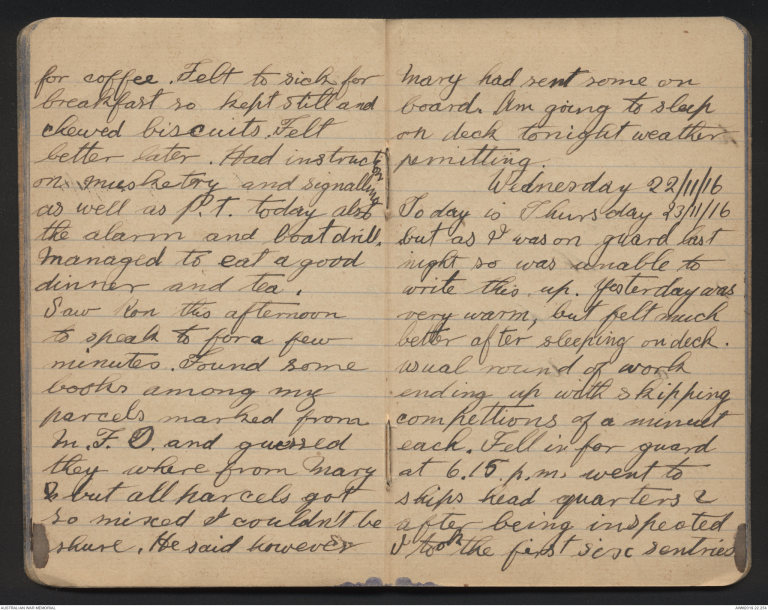 for coffee. Felt to sick for
breakfast so kept still and
chewed biscuits. Felt
better later. Had instruction
on musketry and signalling
as well as P.T. today also
the alarm and boat drill.
Managed to eat a good
dinner and tea.
Saw Ron this afternoon
to speak to for a few
minutes. Found some
books among my
parcels marked from
M.F.O. and guessed
they where from Mary
& but all parcels got
so mixed I couldn't be
shure. He said however
Mary had sent some on
board. Am going to sleep
on deck tonight weather
pemitting.
Wednesday 22/11/16
Today is Thursday 23/11/16
but as I was on guard last
night so was unable to
write this up. Yesterday was
very warm, but felt much
better after sleeping on deck.
usual round of work
ending up with skipping
compettions of a minuet
each. Fell in for guard
at 6.15 p.m. went to
ships head quarters &
after being inspected
I took the first six sentries
AUSTRALIAN WAR MEMORIAL